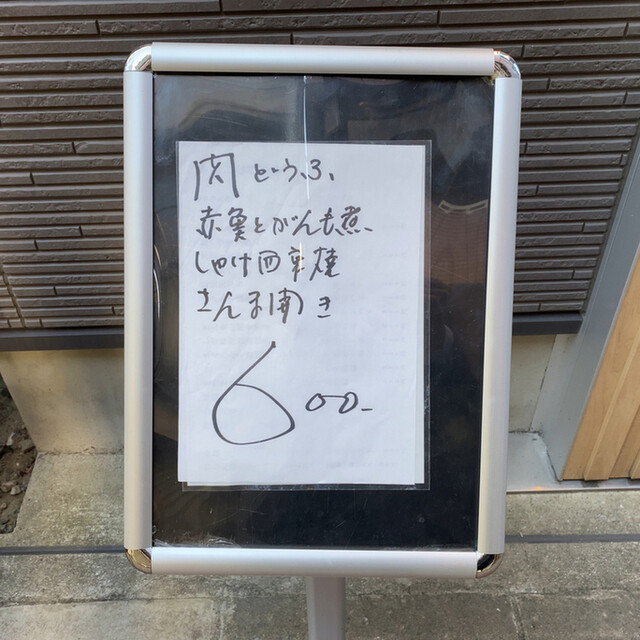 肉とうふ、
赤魚とがんも煮、
しゃけ西京焼
さんま開き
600-